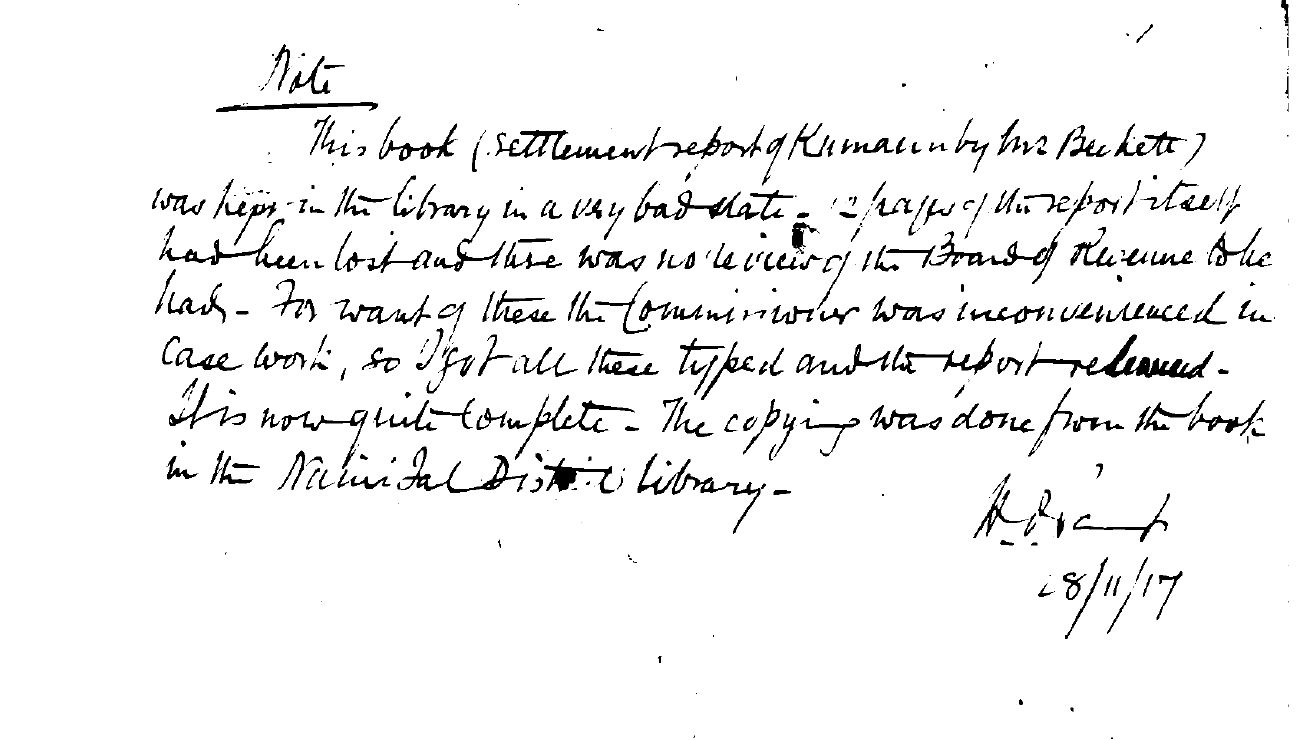 Note
This book (settlement report of Kumaun by Mr Beckett)
was kept in the library in a very bad state - 12 pages of the report itself
had been lost and there was no review of the Board of Revenue to be
had - For want of these the Commissioner was inconvenienced in
case work, so I got all these typed and the report
It is now quite complete - The copying was done from the book
in the Naini Tal District library -
28/11/17